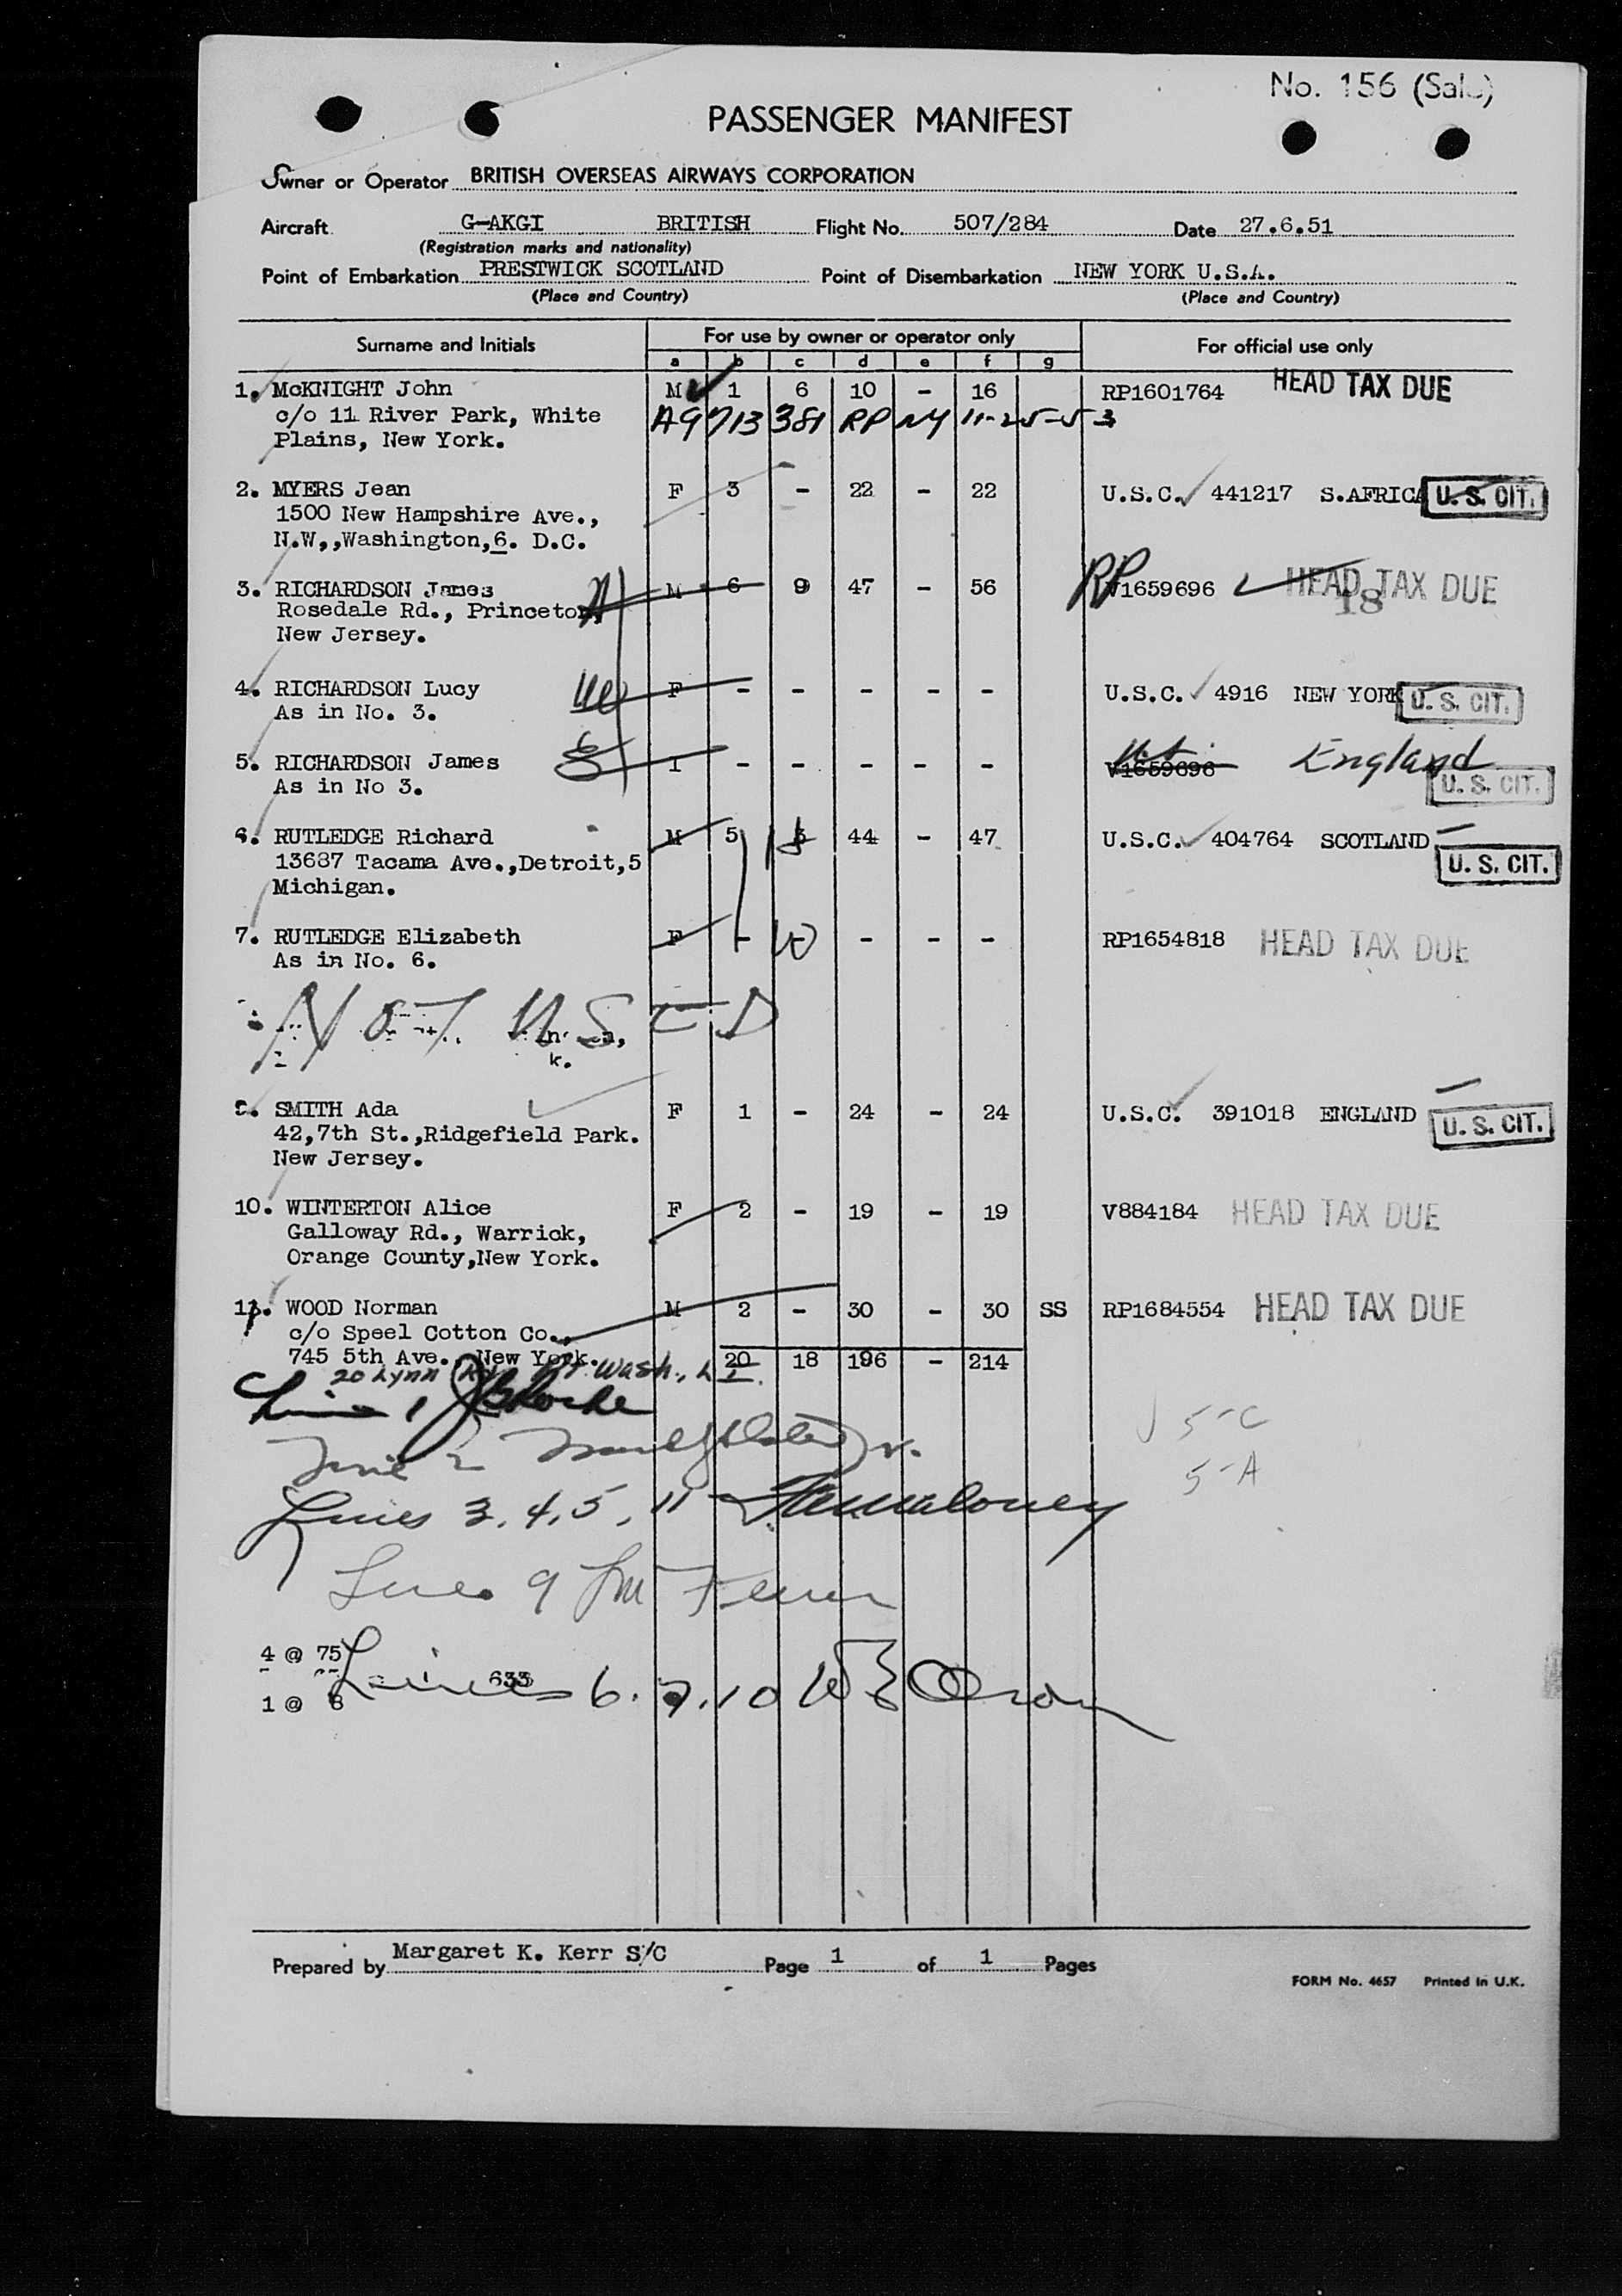 No. 156 (Sale)
PASSENGER MANIFEST
Owner or Operator BRITISH OVERSEAS AIRWAYS CORPORATION
Aircraft G-AKGI BRITISH Flight No. 507/284 Date 27.6.51
(Registration marks and nationality)
Point of Embarkation PRESTWICK SCOTLAND Point of Disembarkation NEW YORK U.S.A.
(Place and Country) (Place and Country)
Surname and Initials For use by owner or operator only For official use only
a b c d e f g
1. McKNIGHT John M 1 6 10 - 16 RP1601764 HEAD TAX DUE
c/o 11 River Park, White A9713381 RP NY 11-25-53
Plains, New York.
2. MYERS Jean F 3 - 22 - 22 U.S.C. 441217 S.AFRICA U. S. CIT.
1500 New Hampshire Ave.,
N.W,,Washington,6. D.C.
3. RICHARDSON James M 6 9 47 - 56 RP V1659696 HEAD TAX DUE
Rosedale Rd., Princeton, 18
New Jersey.
4. RICHARDSON Lucy F - - - - - U.S.C. 4916 NEW YORK U. S. CIT.
As in No. 3.
5. RICHARDSON James I - - - - - V1659696 England
As in No 3. U. S. CIT.
6. RUTLEDGE Richard M 5 3 44 - 47 U.S.C. 404764 SCOTLAND
13687 Tacama Ave.,Detroit,5 U. S. CIT.
Michigan.
7. RUTLEDGE Elizabeth F - - - - - RP1654818 HEAD TAX DUE
As in No. 6.
NOT USED
k.
9. SMITH Ada F 1 - 24 - 24 U.S.C. 391018 ENGLAND U. S. CIT.
42,7th St.,Ridgefield Park.
New Jersey.
10. WINTERTON Alice F 2 - 19 - 19 V884184 HEAD TAX DUE
Galloway Rd., Warrick,
Orange County,New York.
11. WOOD Norman M 2 - 30 - 30 SS RP1684554 HEAD TAX DUE
c/o Speel Cotton Co.,
745 5th Ave., New York. 20 18 196 - 214
20 Lynn Rd Pt Wash., L I.
Line 1
5-C
Line 2
5-A
Lines 3, 4, 5, 11
Line 9
4 @ 75
633
Lines 6. 7. 10
1 @ 6
Prepared by Margaret K. Kerr S/C Page 1 of 1 Pages
FORM No. 4657 Printed in U.K.